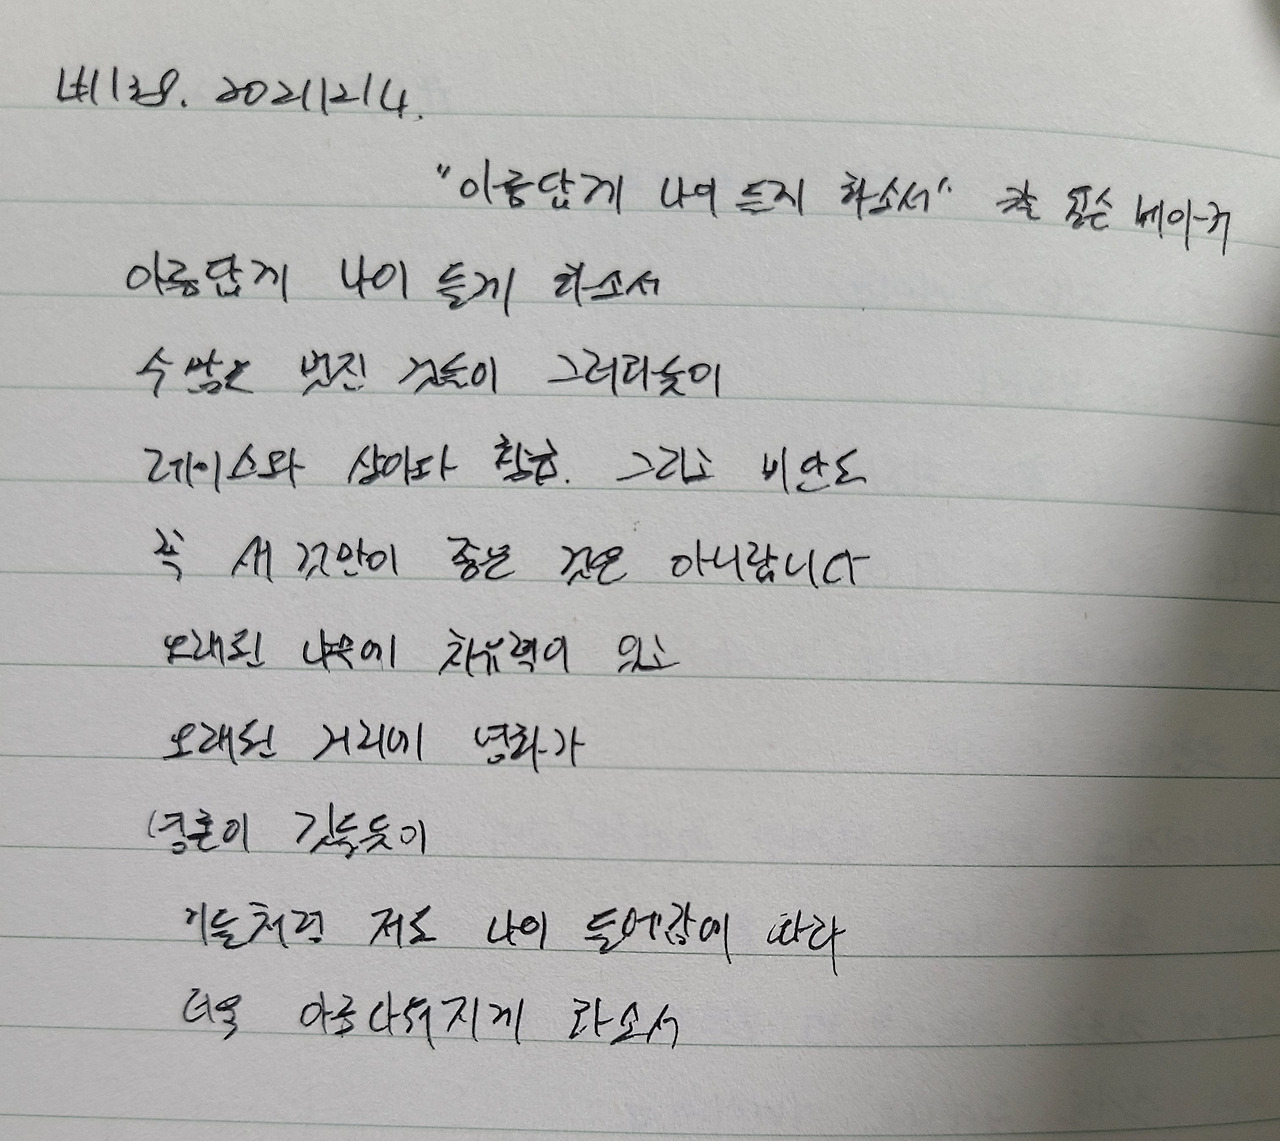 20211214.
"아름답게 나이 듣지 하소서" 칼 윌슨 베이커
아름답게 나이 들게 하소서
수많은 멋진 것들이 그러하듯이
레이스와 상아와 황금. 그리고 비단도
꼭 새 것만이 좋은 것은 아니랍니다
오래된 나무에 치유력이 있고
오래된 거리에 영화가
영혼이 깃들듯이
이들처럼 저도 나이 들어감에 따라
더욱 아름다워지게 하소서